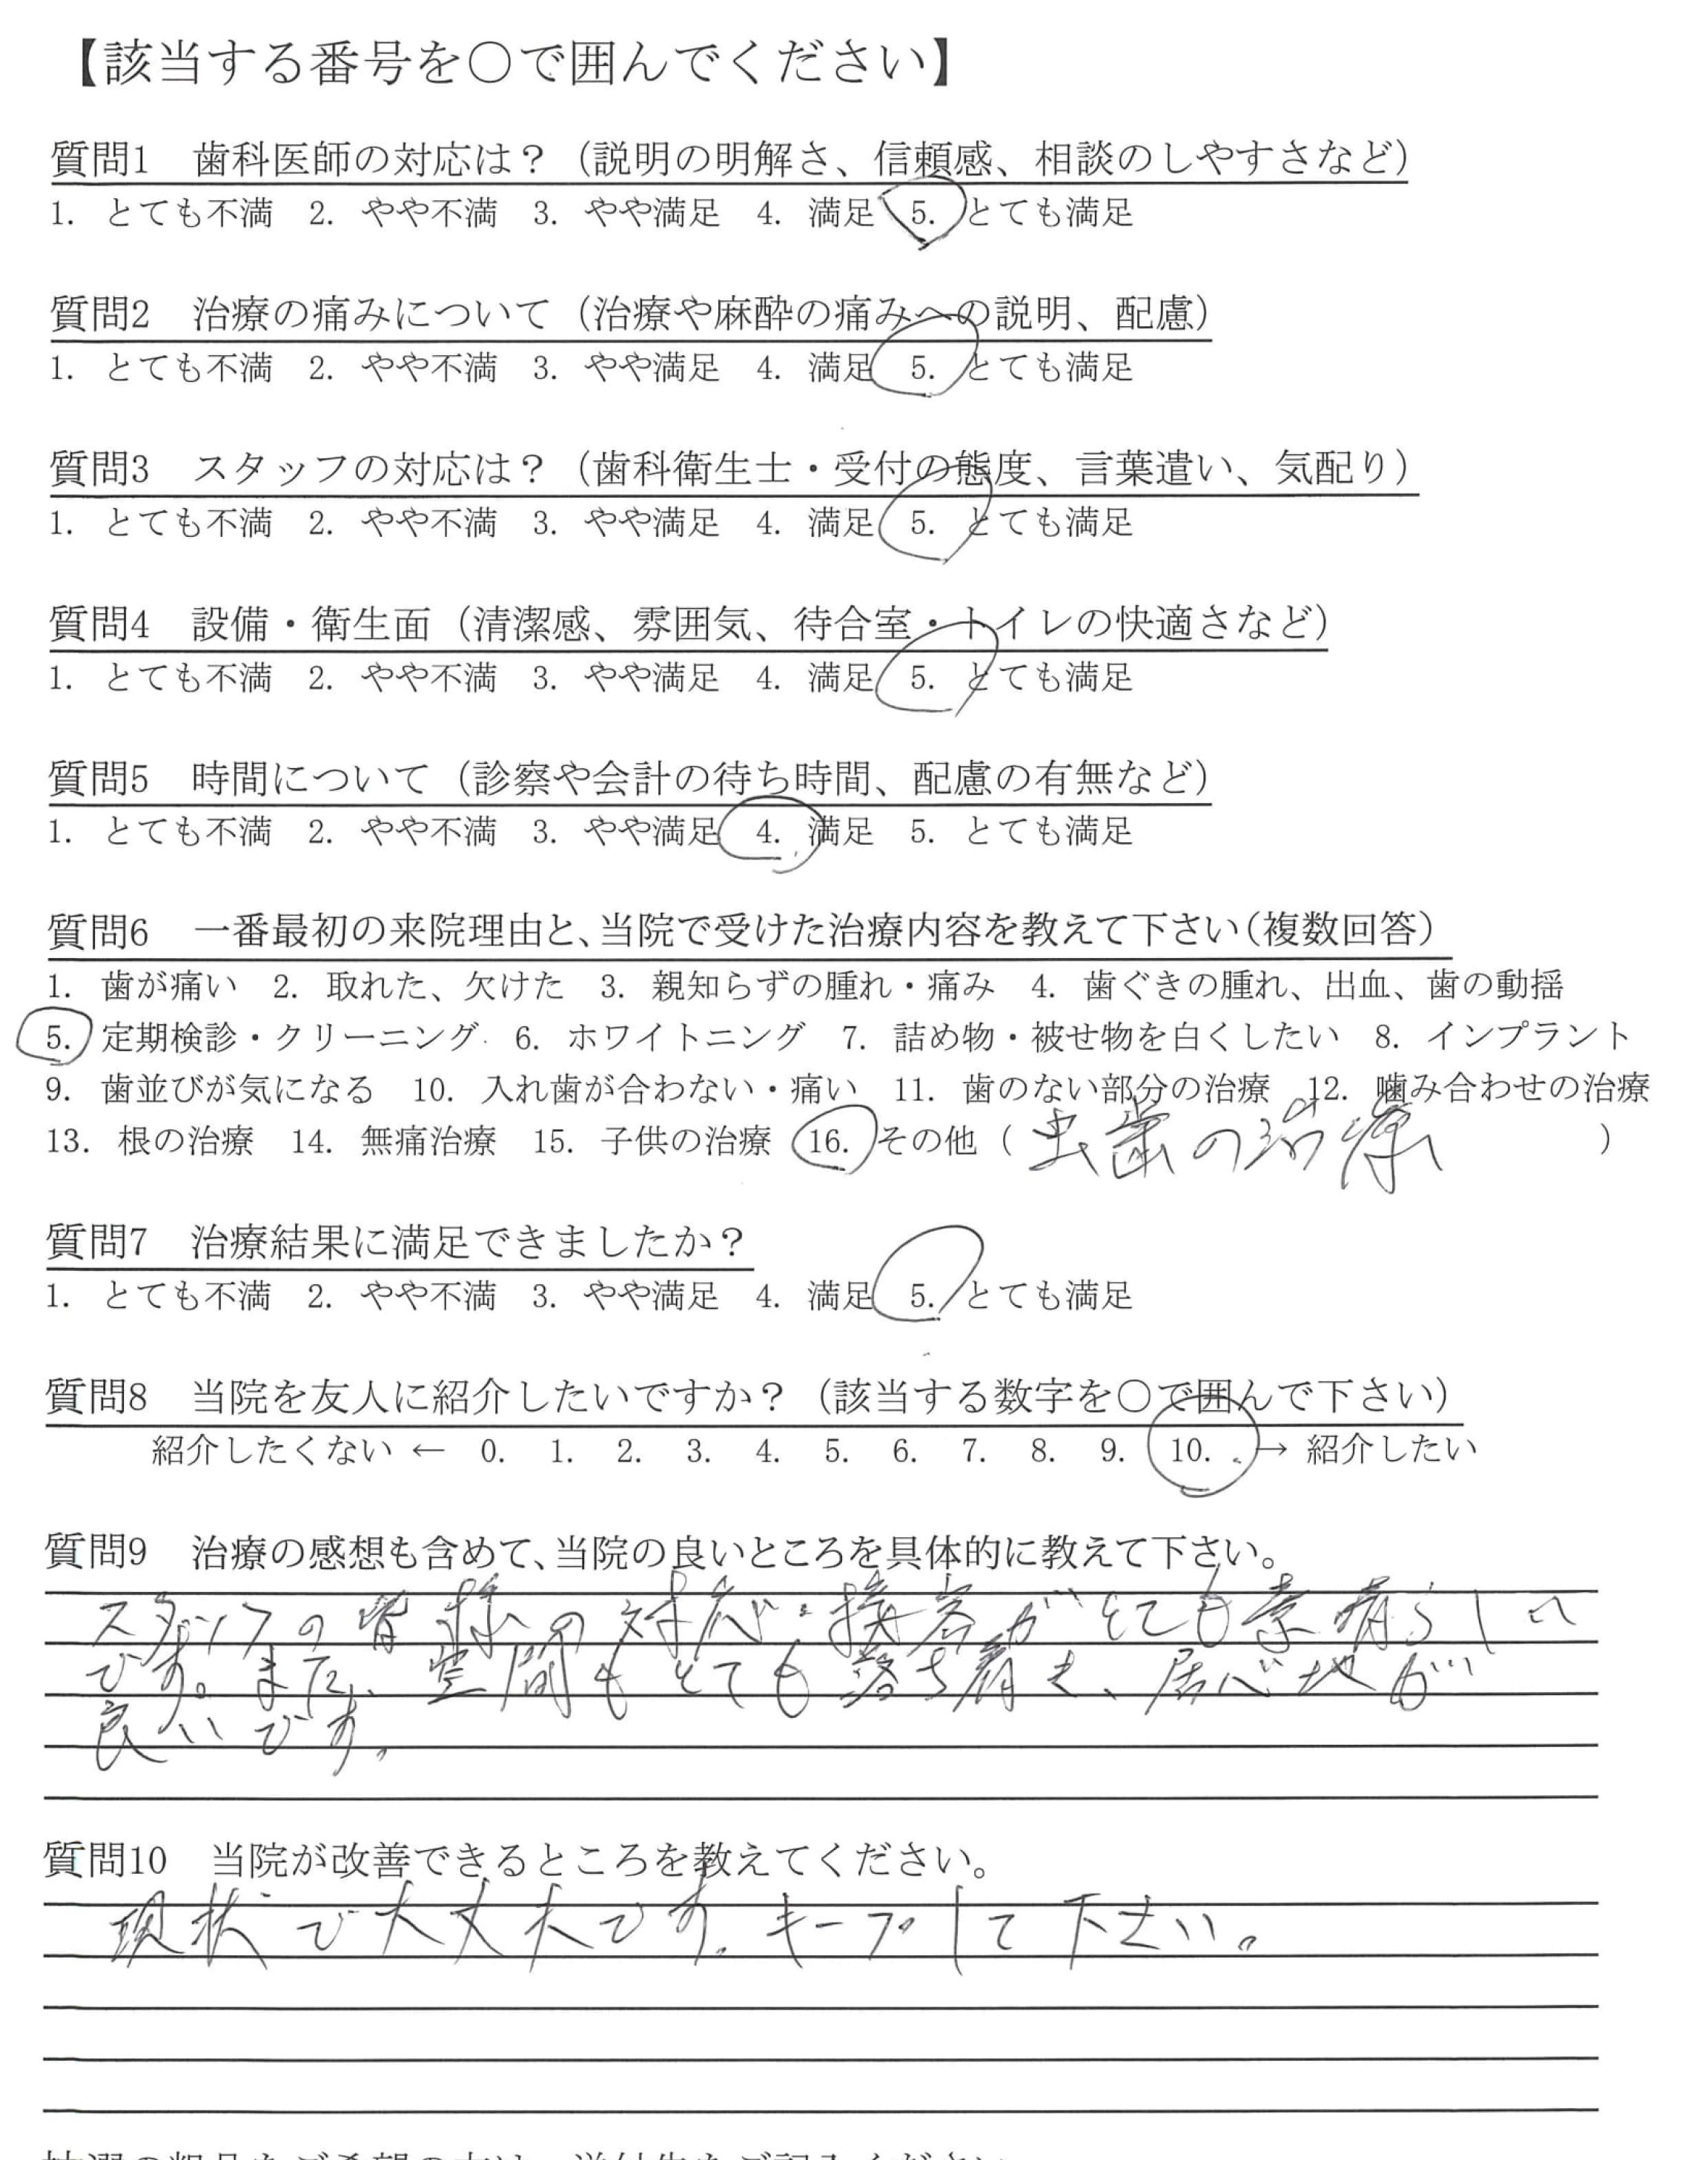 【該当する番号を〇で囲んでください】
質問1 歯科医師の対応は？（説明の明解さ、信頼感、相談のしやすさなど）
1. とても不満 2. やや不満 3. やや満足 4. 満足 5. とても満足
質問2 治療の痛みについて（治療や麻酔の痛みへの説明、配慮）
1. とても不満 2. やや不満 3. やや満足 4. 満足 5. とても満足
質問3 スタッフの対応は？（歯科衛生士・受付の態度、言葉遣い、気配り）
1. とても不満 2. やや不満 3. やや満足 4. 満足 5. とても満足
質問4 設備・衛生面（清潔感、雰囲気、待合室・トイレの快適さなど）
1. とても不満 2. やや不満 3. やや満足 4. 満足 5. とても満足
質問5 時間について（診察や会計の待ち時間、配慮の有無など）
1. とても不満 2. やや不満 3. やや満足 4. 満足 5. とても満足
質問6 一番最初の来院理由と、当院で受けた治療内容を教えて下さい（複数回答）
1. 歯が痛い 2. 取れた、欠けた 3. 親知らずの腫れ・痛み 4. 歯ぐきの腫れ、出血、歯の動揺
5. 定期検診・クリーニング 6. ホワイトニング 7. 詰め物・被せ物を白くしたい 8. インプラント
9. 歯並びが気になる 10. 入れ歯が合わない・痛い 11. 歯のない部分の治療 12. 噛み合わせの治療
13. 根の治療 14. 無痛治療 15. 子供の治療 16. その他（虫歯の治療）
質問7 治療結果に満足できましたか？
1. とても不満 2. やや不満 3. やや満足 4. 満足 5. とても満足
質問8 当院を友人に紹介したいですか？（該当する数字を〇で囲んで下さい）
紹介したくない ← 0. 1. 2. 3. 4. 5. 6. 7. 8. 9. 10. → 紹介したい
質問9 治療の感想も含めて、当院の良いところを具体的に教えて下さい。
スタッフの皆様の対応・接客がとても素晴らしい
です。また、空間もとても落ち着き、居心地が
良いです。
質問10 当院が改善できるところを教えてください。
現状で大丈夫です。キープして下さい。